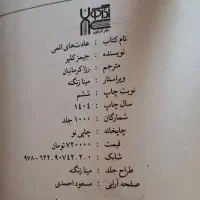 نام کتاب : عادت‌های اتمی
نویسنده : جیمز کلیر
مترجم : رزا کرمانیان
ویراستار : مینا زنگنه
نوبت چاپ : ششم
سال چاپ : ۱۴۰۴
شمارگان : ۱۰۰۰ جلد
چاپخانه : چاپی نو
قیمت : ۷۲۰۰۰۰ تومان
شابک : ۹۷۸-۶۲۲-۹۰۷۴۲-۲-۰
طراح جلد : مینا زنگنه
صفحه آرایی : مسعود احمدی